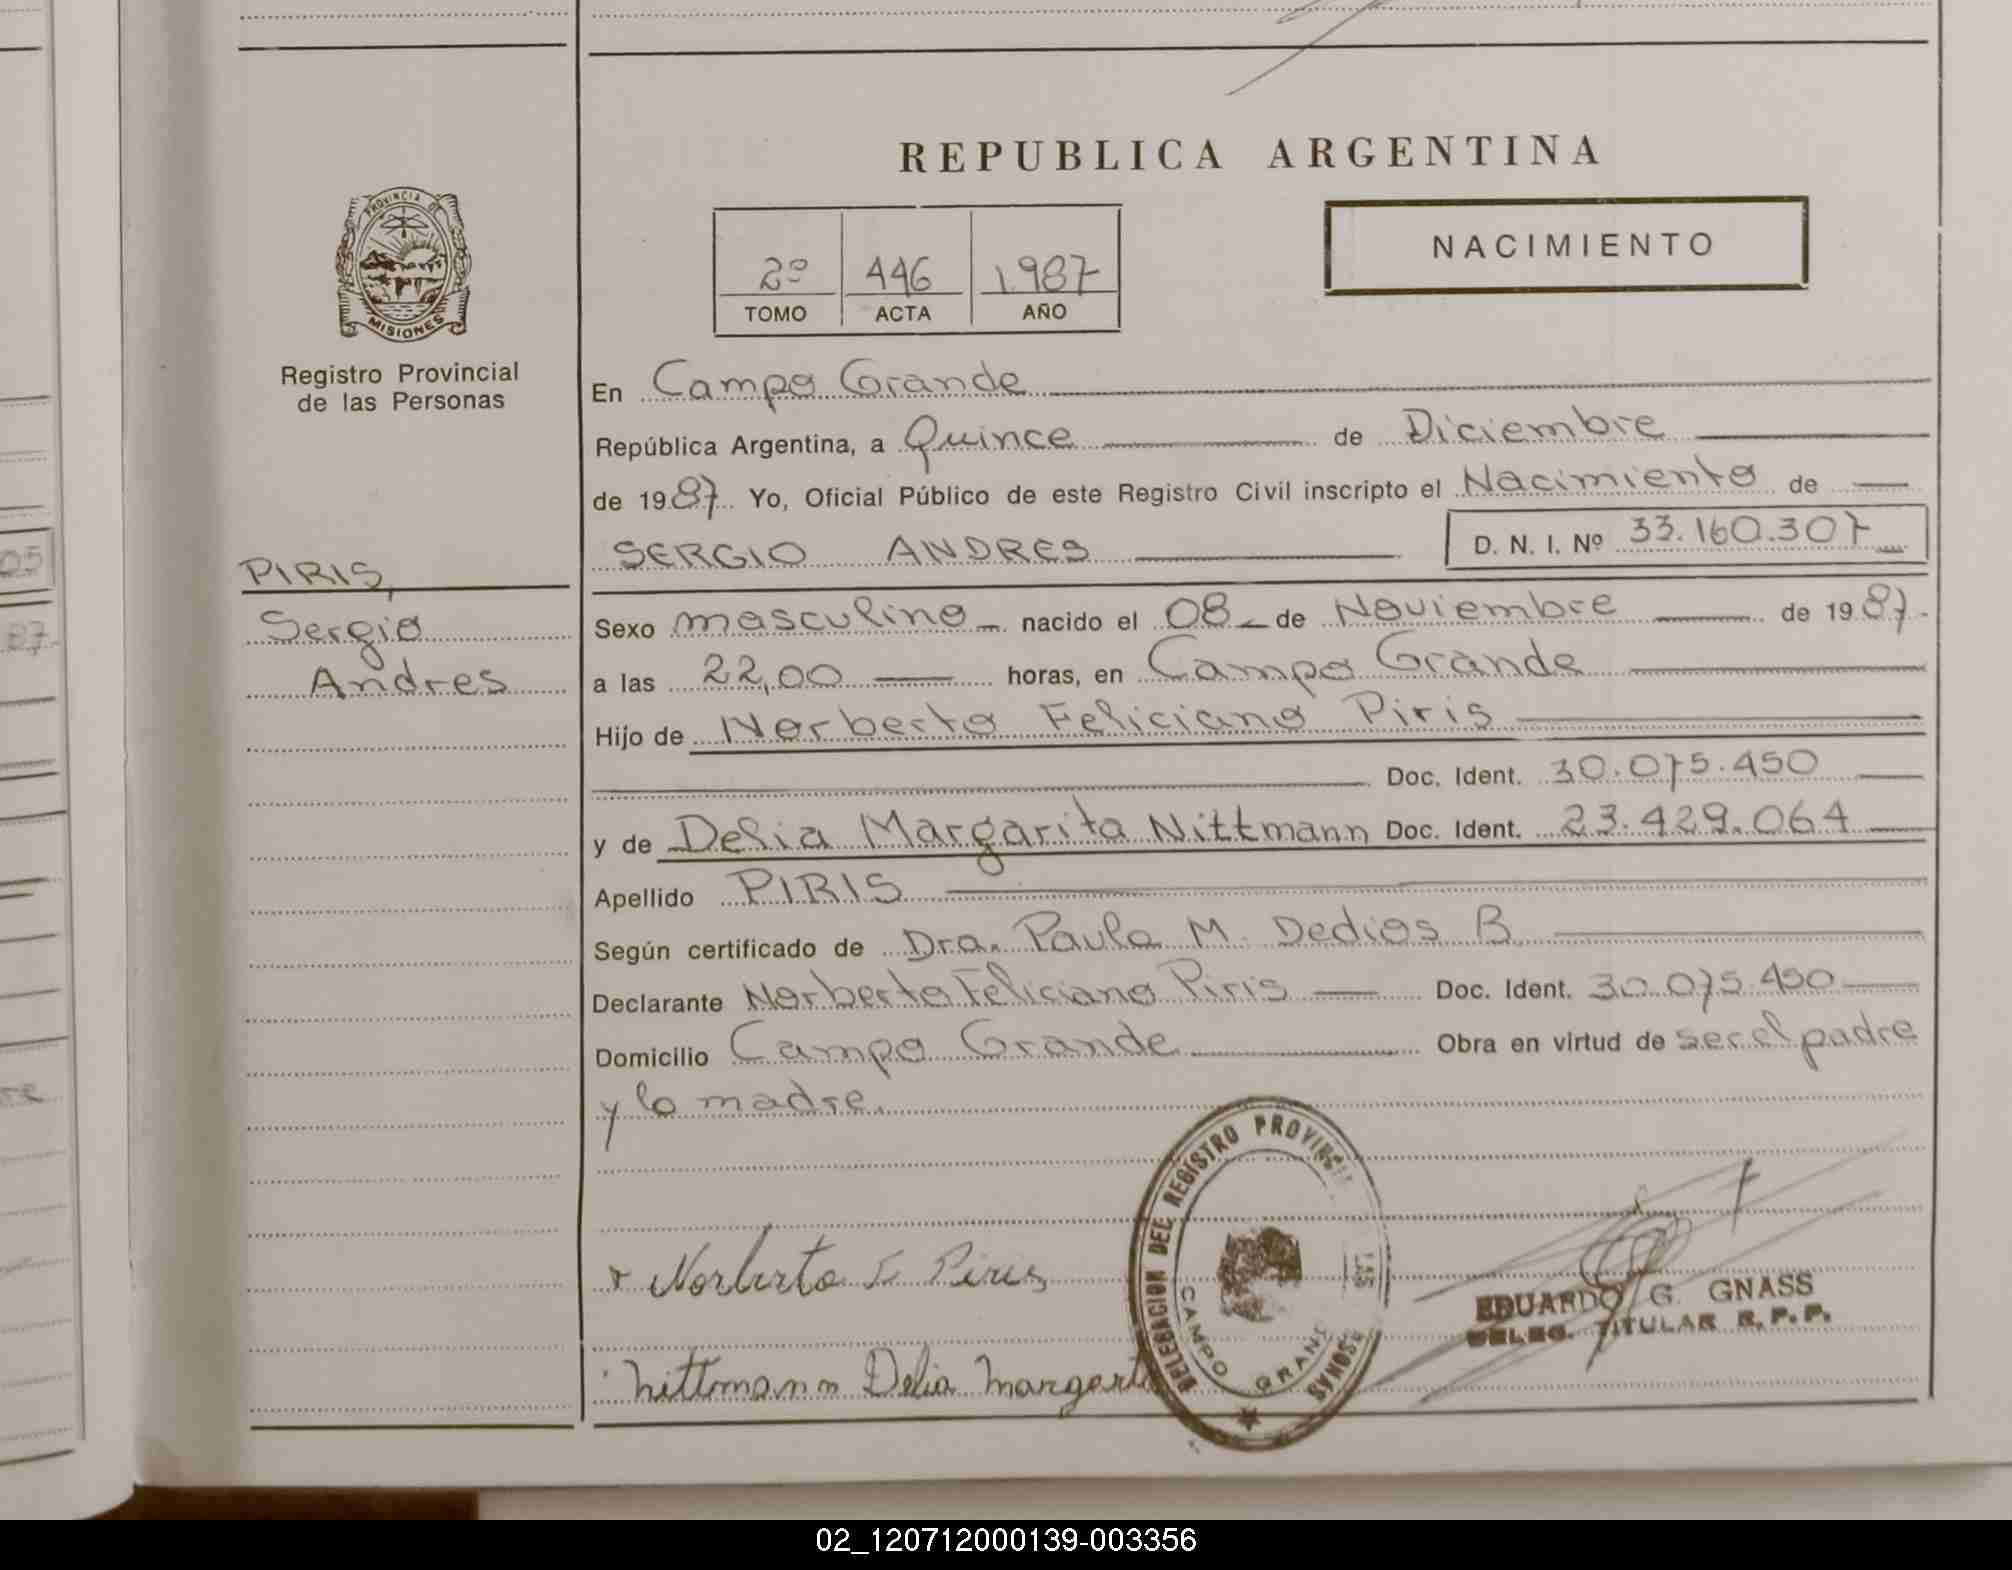 REPUBLICA ARGENTINA
NACIMIENTO
2º 446 1.987
TOMO ACTA AÑO
PROVINCIA DE
MISIONES
Registro Provincial
de las Personas
En Campo Grande
República Argentina, a Quince de Diciembre
de 1987 Yo, Oficial Público de este Registro Civil inscripto el Nacimiento de
SERGIO ANDRES D. N. I. Nº 33.160.307
PIRIS,
Sergio
Andres
Sexo masculino nacido el 08 de Noviembre de 1987.
a las 22,00 horas, en Campo Grande
Hijo de Norberto Feliciano Piris
Doc. Ident. 30.075.450
y de Delia Margarita Nittmann Doc. Ident. 23.429.064
Apellido PIRIS
Según certificado de Dra. Paula M. Dedios B
Declarante Norberto Feliciano Piris Doc. Ident. 30.075.450
Domicilio Campo Grande Obra en virtud de ser el padre
y la madre.
DELEGACION DEL REGISTRO PROVINCIAL
LAS
CAMPO GRANDE
Norberto F. Piris
EDUARDO G. GNASS
DELEG. TITULAR R. P. P.
Nittmann Delia Margarita
05
87.
re
02_120712000139-003356